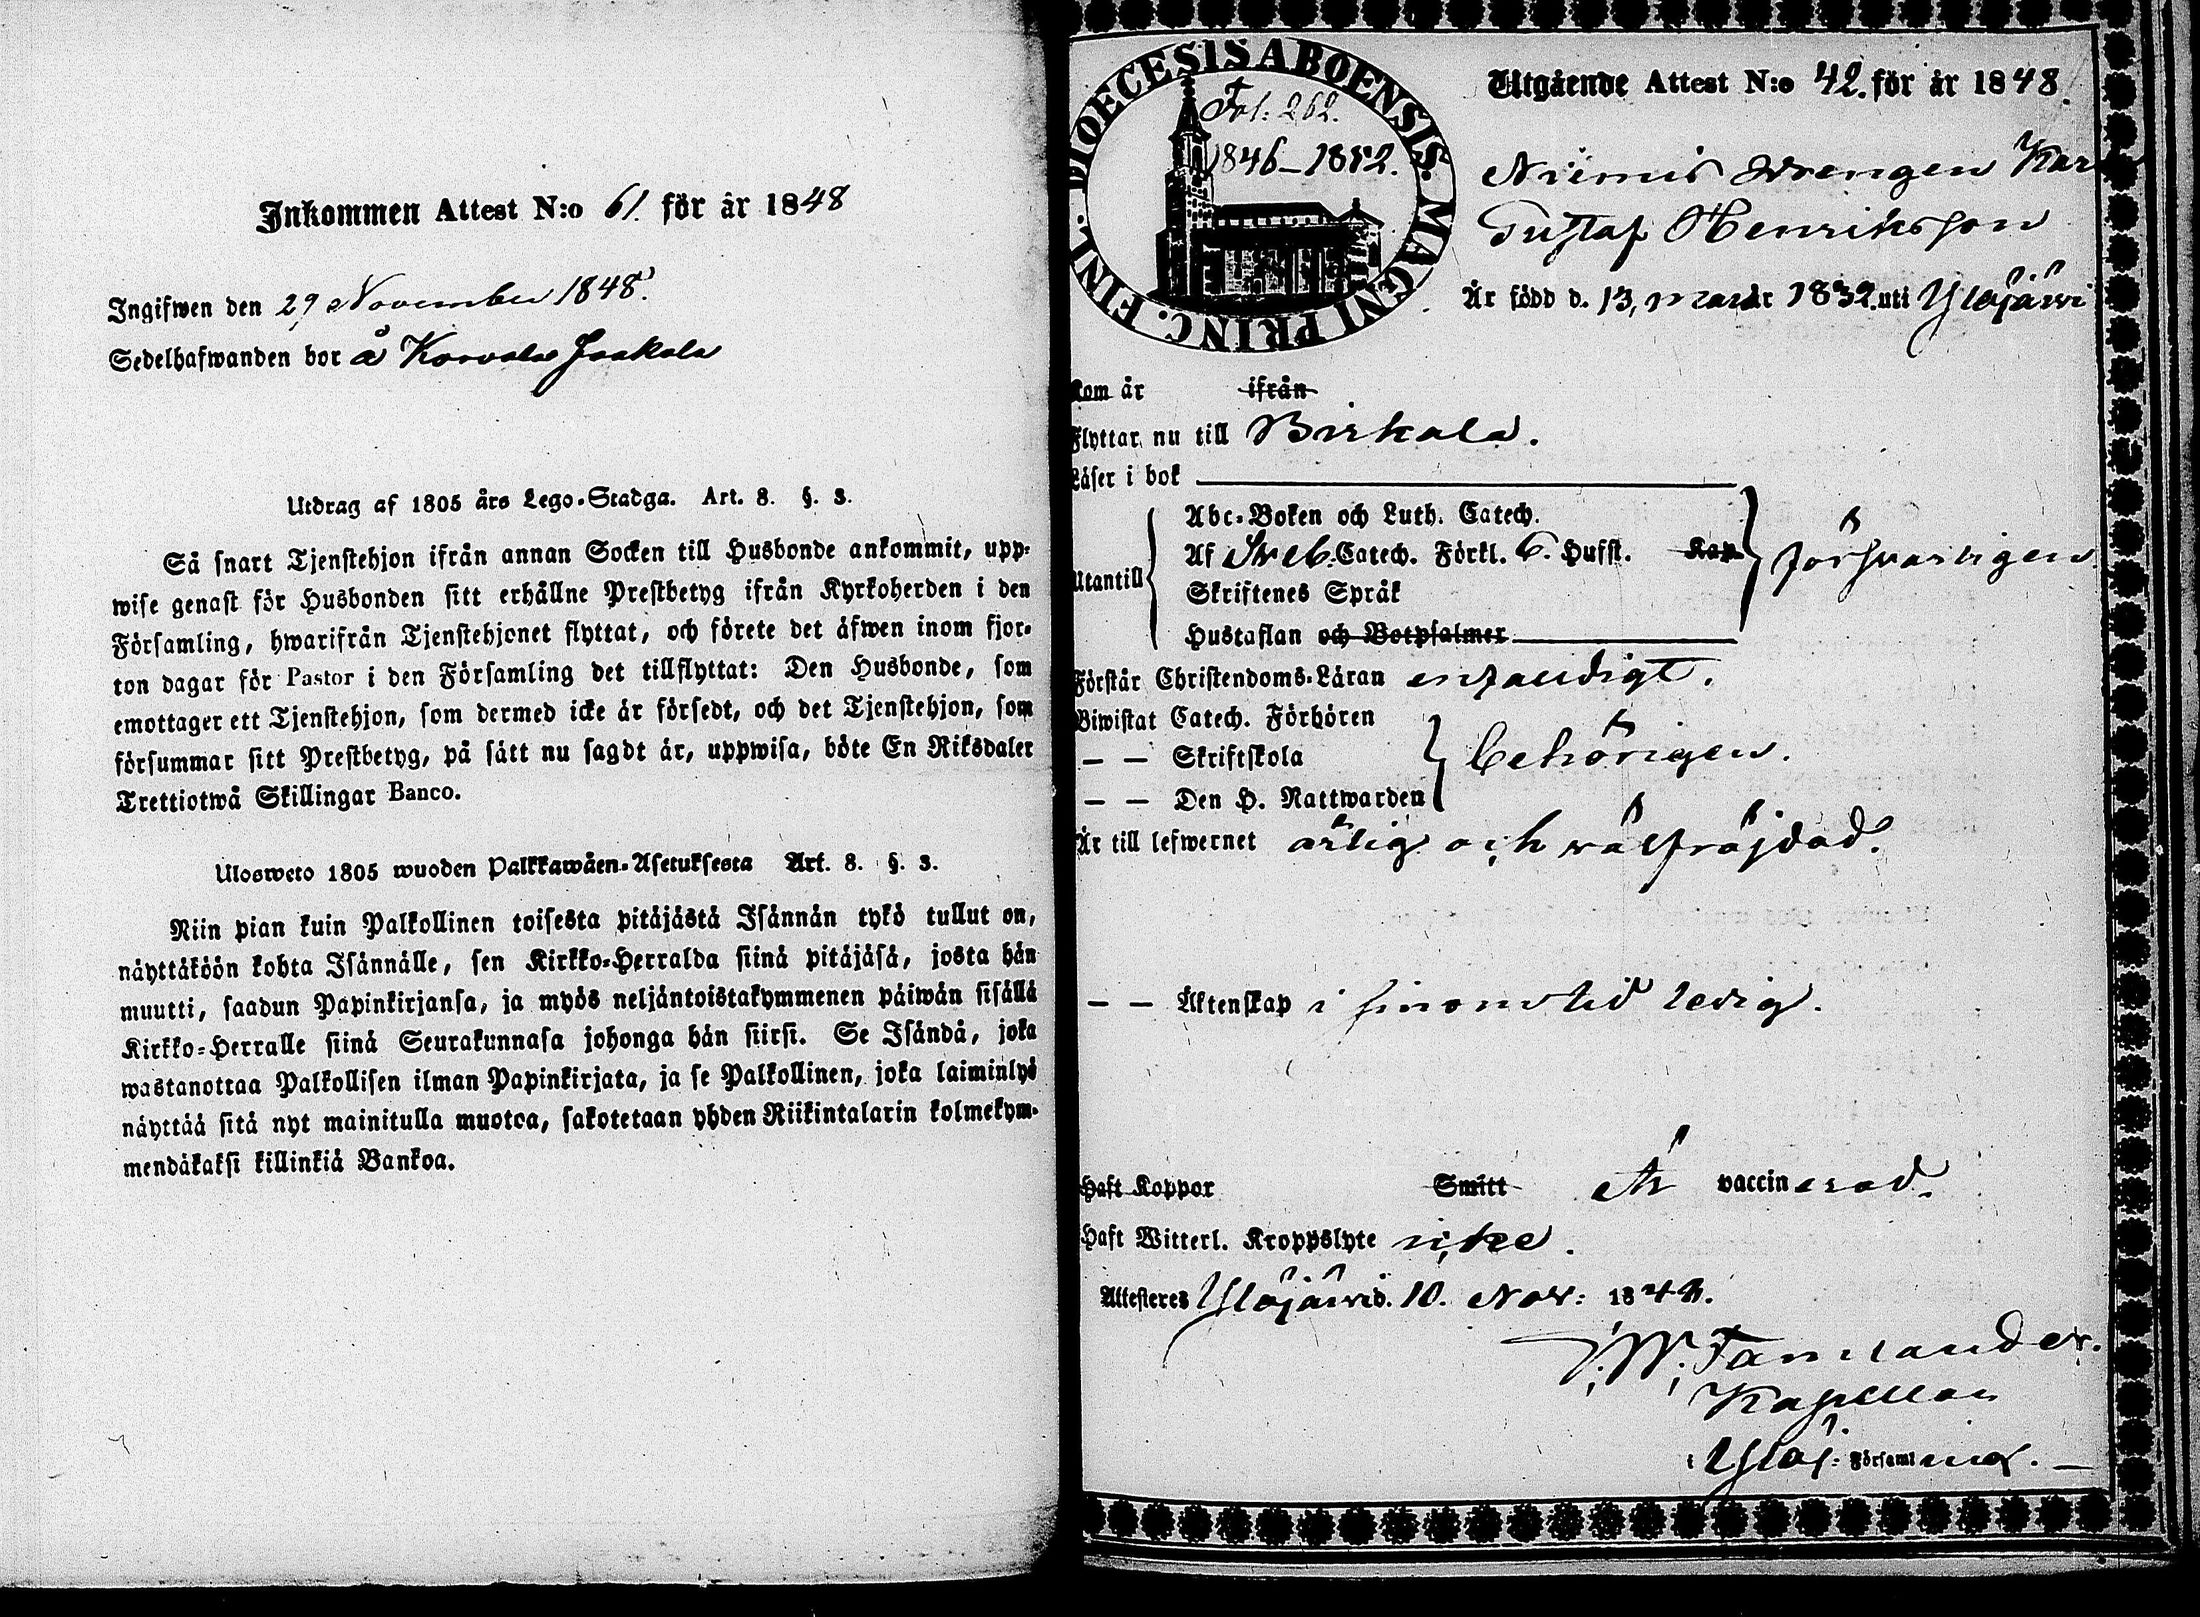 Inkommen Attest N:o 61. för år 1848
Ingifwen den 29 November 1848.
Sedelhafwanden bor å Korvola Jaakola
Utdrag af 1805 års Lego-Stadga. Art. 8. §. 3.
Så snart Tjenstehjon ifrån annan Socken till Husbonde ankommit, upp-
wise genast för Husbonden sitt erhållne Prestbetyg ifrån Kyrkoherden i den
Församling, hwarifrån Tjenstehjonet flyttat, och förete det äfwen inom fjor-
ton dagar för Pastor i den Församling det tillflyttat: Den Husbonde, som
emottager ett Tjenstehjon, som dermed icke är försedt, och det Tjenstehjon, som
försummar sitt Prestbetyg, på sätt nu sagdt är, uppwisa, böte En Riksdaler
Trettiotwå Skillingar Banco.
Ulosweto 1805 wuoden Palkkawäen-Asetuksesta Art. 8. §. 3.
Niin pian kuin Palkollinen toisesta pitäjästä Isännän tykö tullut on,
näyttäköön kohta Isännälle, sen Kirkko-Herralda siinä pitäjäsä, josta hän
muutti, saadun Papinkirjansa, ja myös neljäntoistakymmenen päiwän sisällä
Kirkko-Herralle siinä Seurakunnasa johonga hän siirsi. Se Isändä, joka
wastanottaa Palkollisen ilman Papinkirjata, ja se Palkollinen, joka laiminlyö
näyttää sitä nyt mainitulla muotoa, sakotetaan yhden Riikintalarin kolmekym-
mendäkaksi killinkiä Bankoa.
FINL. DIOECESIS ABOENSIS. MAGNI PRINC.
Fol: 262.
1846–1852.
Utgående Attest N:o 42. för år 1848.
Niemis drengen Kar
Gustaf Henriksson
Är född d. 13, mars år 1832. uti Ylöjärvi
Kom år ifrån
Flyttar nu till Birkala.
Läser i bok
Utantill
Abc-Boken och Luth. Catech.
Af Sveb. Catech. Förkl. 6. Hufst. Kap.
försvarligen.
Skriftenes Språk
Hustaflan och Botpsalmer
Förstår Christendoms-Läran enfaldigt.
Biwistat Catech. Förhören
— — Skriftskola
behörigen.
— — Den H. Nattwarden
Är till lefwernet ärlig och välfräjdad.
— — Äktenskap i sinom tid ledig.
Haft Koppor Smitt Är vaccinerad.
Haft Witterl. Kroppslyte icke.
Attesteres Ylöjärvi d. 10. Nov: 1848.
Kapellan
i Ylöj: Församling.